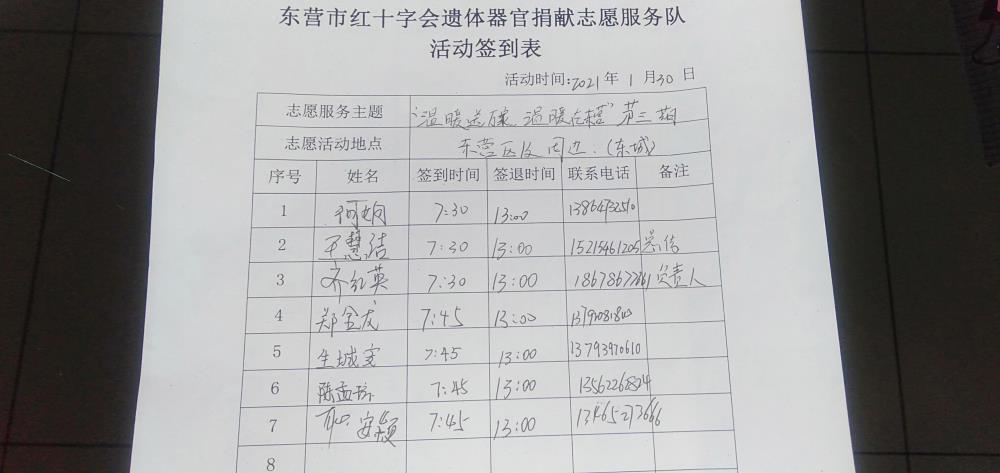 东营市红十字会遗体器官捐献志愿服务队
活动签到表
活动时间:2021年 1 月30 日
志愿服务主题 "温暖送万家 温暖 " 第三期
志愿活动地点 东营区及周边.(东城)
序号 姓名 签到时间 签退时间 联系电话 备注
1 何娴 7:30 13:00 13864732510
2 王慧洁 7:30 13:00 15215461205
3 齐红英 7:30 13:00 负责人
4 郑金龙 7:45 13:00
5 生城宝 7:45 13:00 13793970610
6 陈孟 7:45 13:00 13562268824
7 安颖 7:45 13:00 13465273666
8